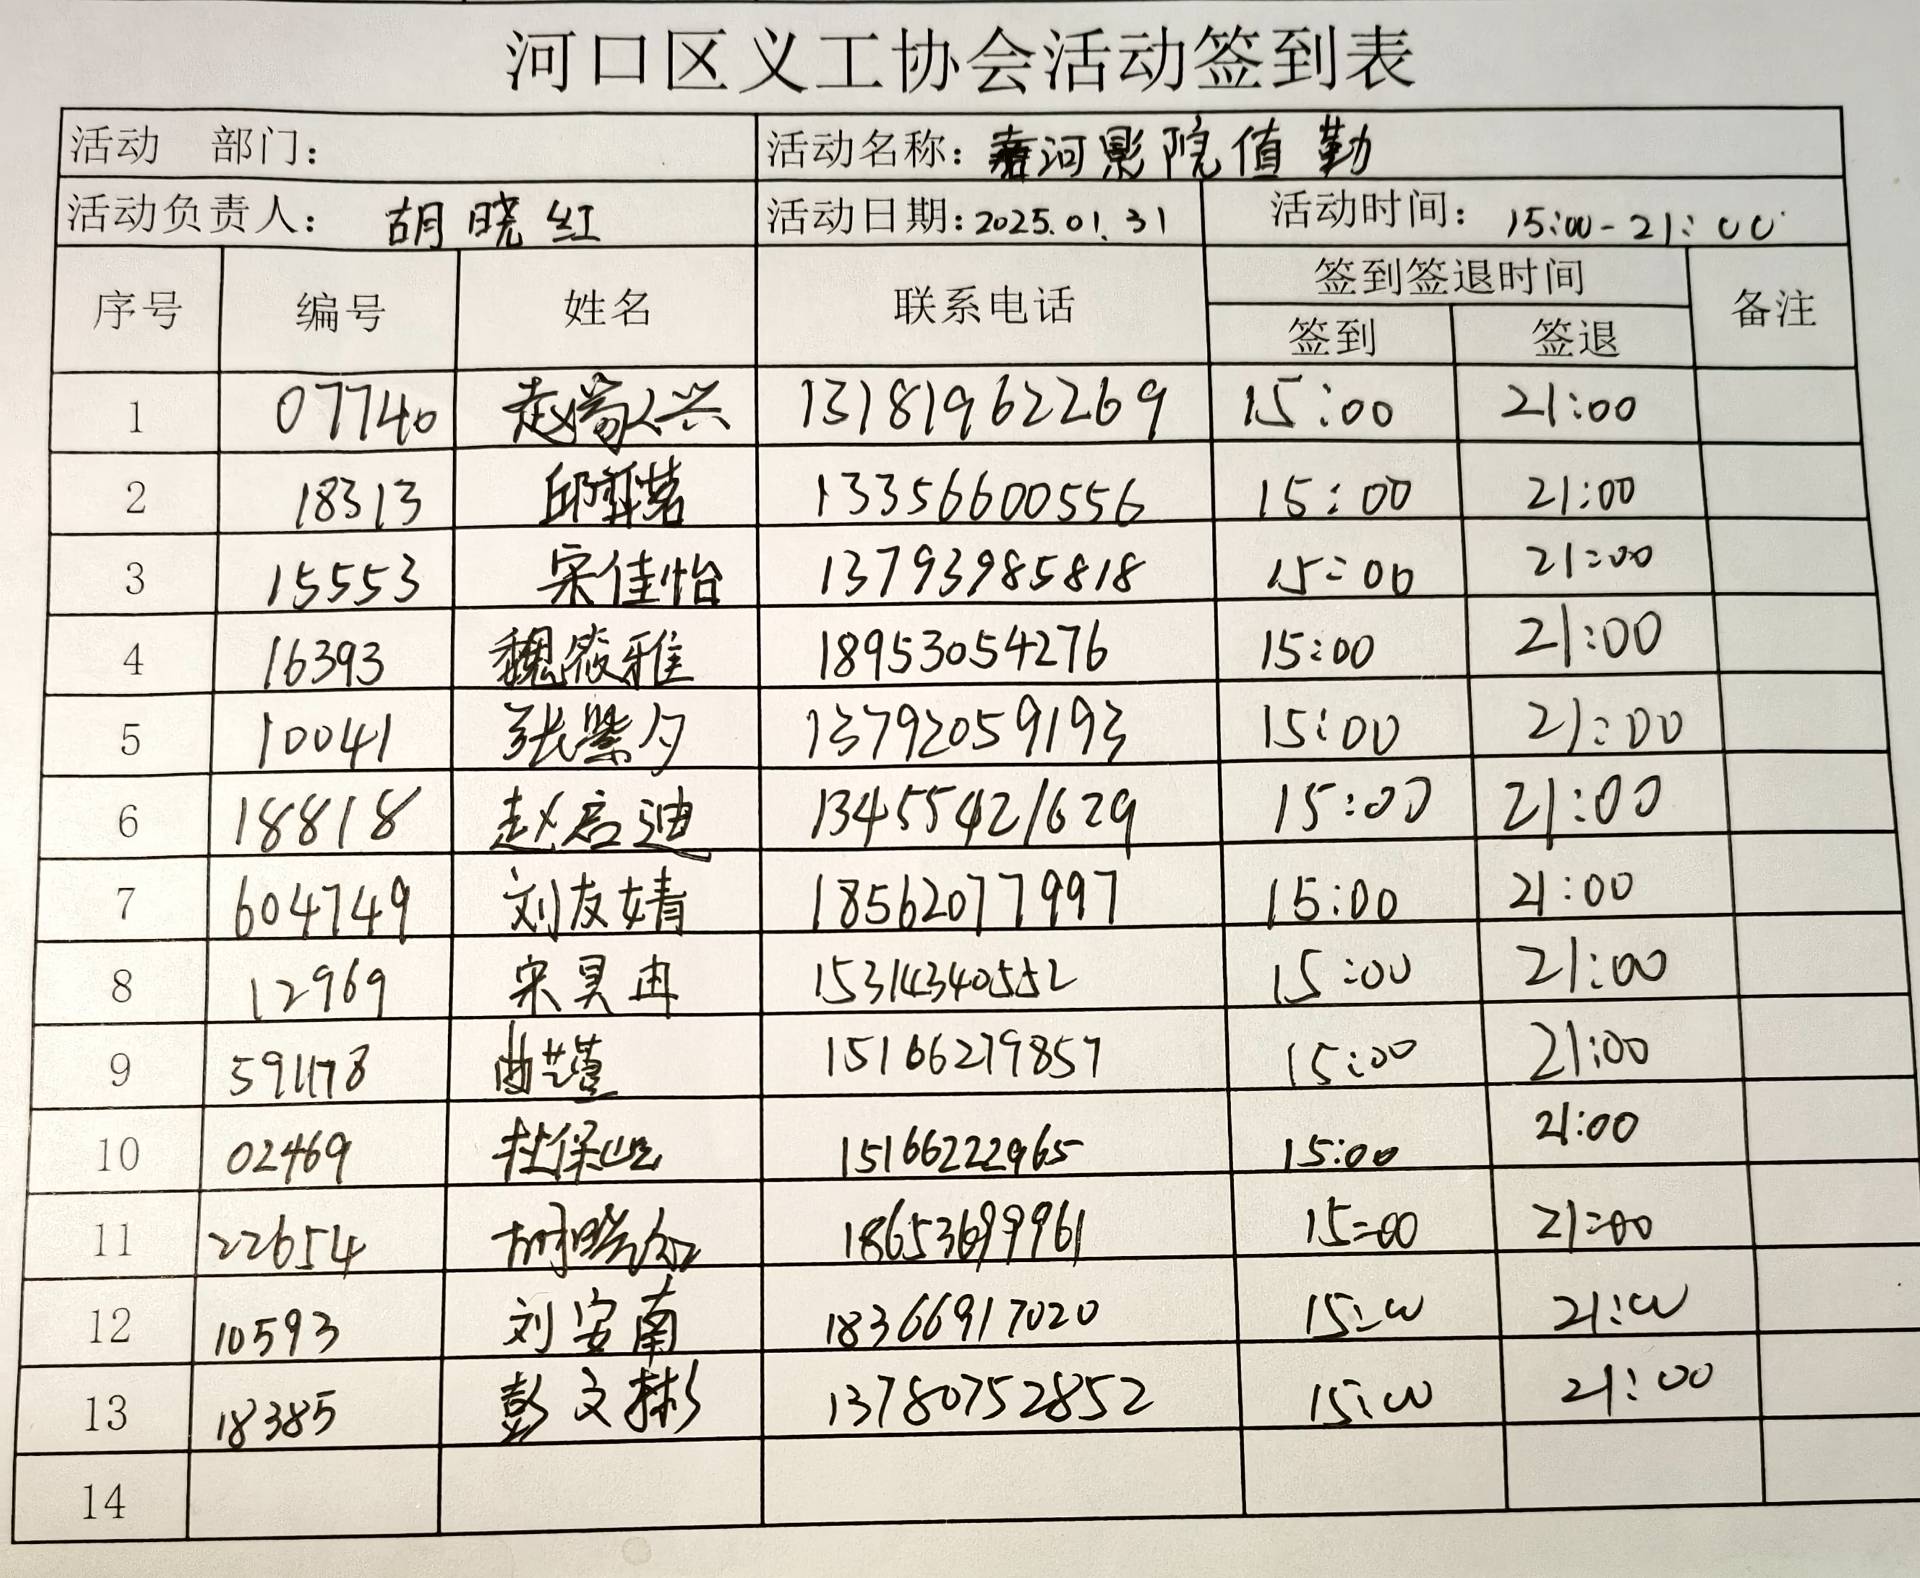 河口区义工协会活动签到表
活动 部门：
活动名称：河影院值勤
活动负责人：胡晓红
活动日期：2025.01.31
活动时间：15:00-21:00
序号 编号 姓名 联系电话 签到签退时间 备注
签到 签退
1 07740 赵 兴 13181962269 15:00 21:00
2 18313 邱 茗 13356600556 15:00 21:00
3 15553 宋佳怡 13793985818 15:00 21:00
4 16393 魏筱雅 18953054276 15:00 21:00
5 10041 张紫夕 13792059193 15:00 21:00
6 18818 赵启迪 13455421629 15:00 21:00
7 604749 刘友婧 18562077997 15:00 21:00
8 12969 宋昊冉 15314340552 15:00 21:00
9 曲 15166279857 15:00 21:00
10 02469 杜保 15166222965 15:00 21:00
11 22654 胡晓红 18653699961 15:00 21:00
12 10593 刘安南 18366917020 15:00 21:00
13 18385 彭文彬 13780752852 15:00 21:00
14